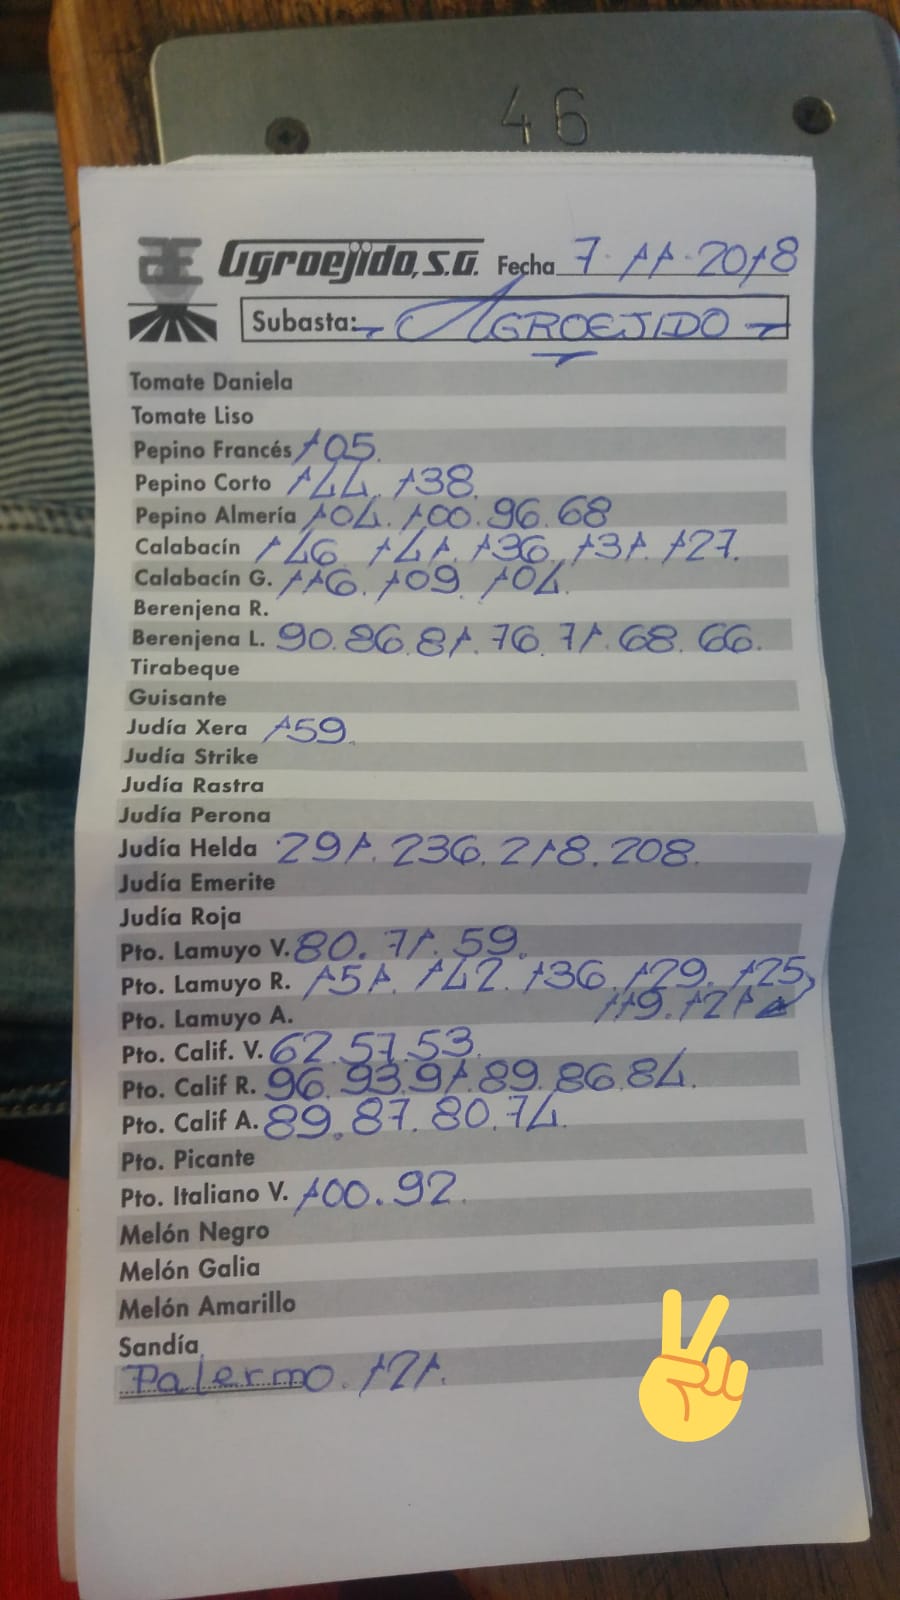 46
Agroejido, S.A. Fecha 7. 11. 2018
Subasta: - AGROEJIDO -
Tomate Daniela
Tomate Liso
Pepino Francés 105.
Pepino Corto 144. 138.
Pepino Almería 104. 100. 96. 68
Calabacín 146. 141. 136. 131. 127.
Calabacín G. 116. 109. 104.
Berenjena R.
Berenjena L. 90. 86. 81. 76. 71. 68. 66.
Tirabeque
Guisante
Judía Xera 159.
Judía Strike
Judía Rastra
Judía Perona
Judía Helda 291. 236. 218. 208.
Judía Emerite
Judía Roja
Pto. Lamuyo V. 80. 71. 59.
Pto. Lamuyo R. 151. 142. 136. 129. 125,
119. 121
Pto. Lamuyo A.
Pto. Calif. V. 62. 57. 53.
Pto. Calif R. 96. 93. 91. 89. 86. 84.
Pto. Calif A. 89. 87. 80. 74.
Pto. Picante
Pto. Italiano V. 100. 92.
Melón Negro
Melón Galia
Melón Amarillo
Sandía
Palermo. 121.